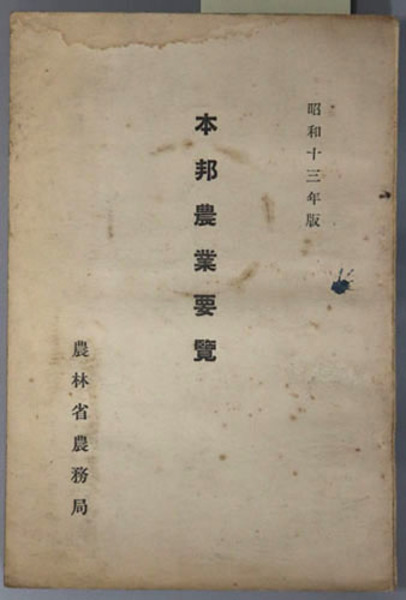 昭和十三年版
本邦農業要覽
農林省農務局